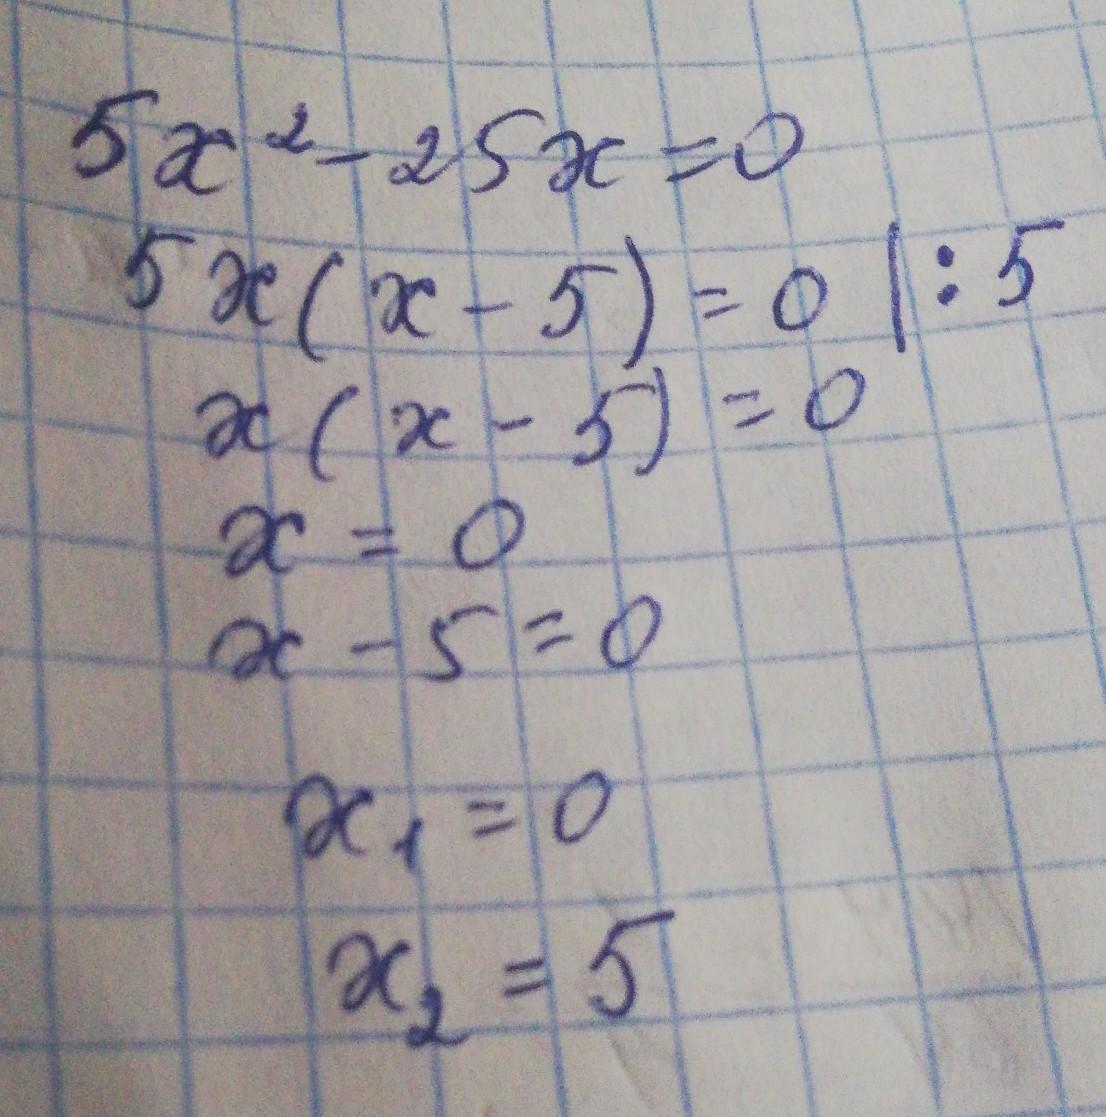 5x² - 25x = 0
5x(x - 5) = 0 | : 5
x(x - 5) = 0
x = 0
x - 5 = 0
x₁ = 0
x₂ = 5